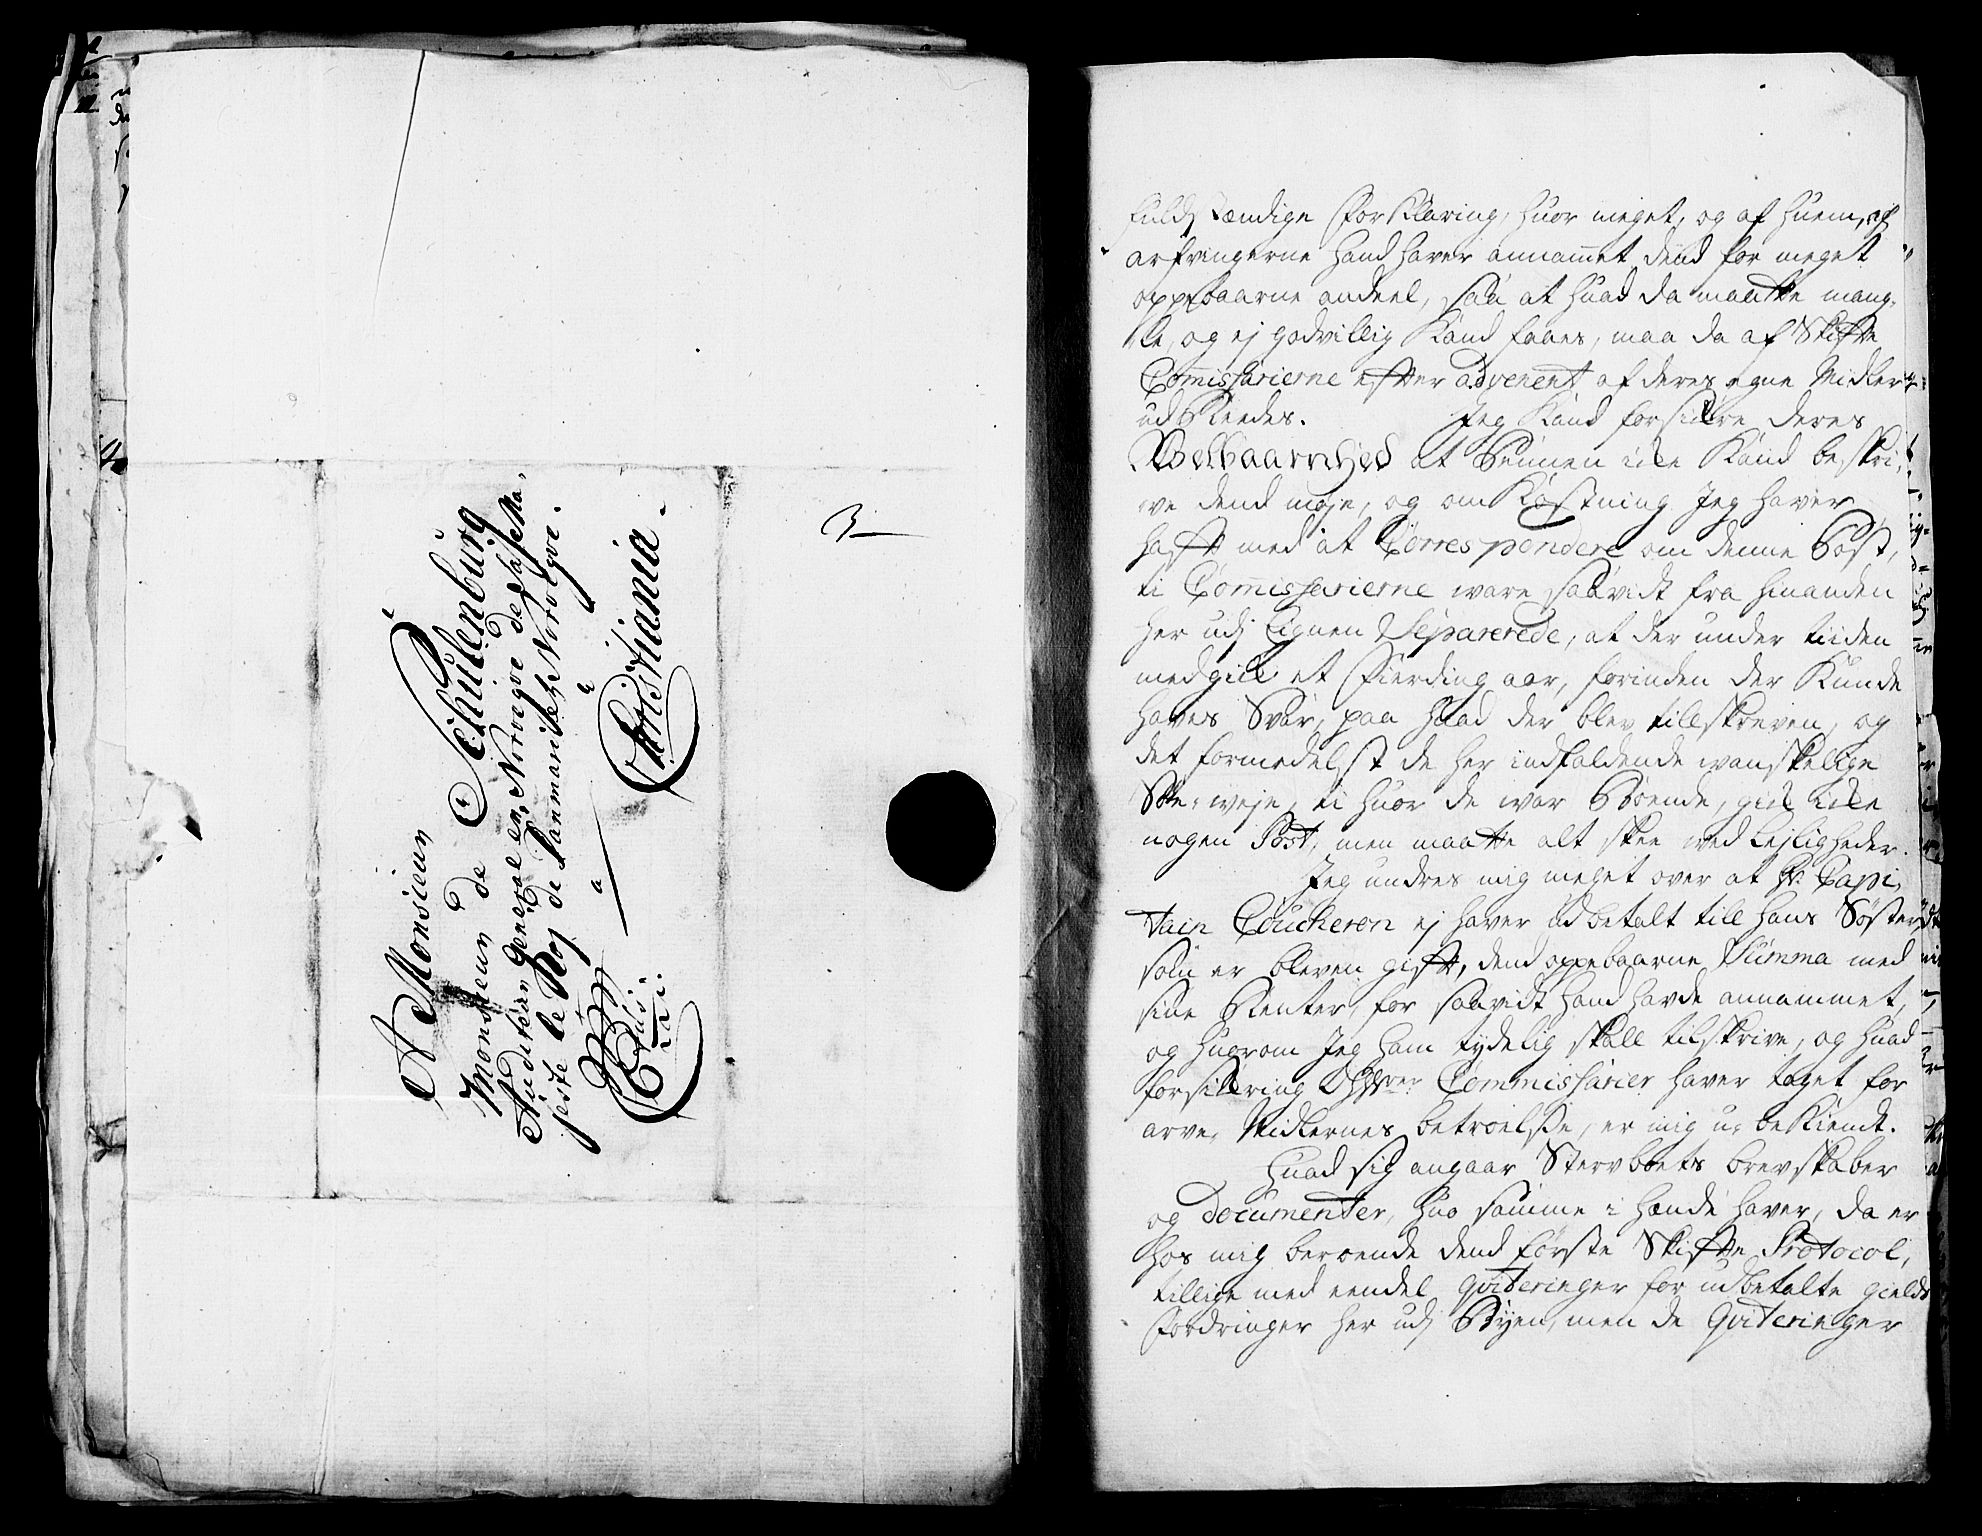 A Monsieur
Monsieur de Schulenburg
Auditeur General en Norvegve de sa Ma,
jeste le Roj de Danmarc et Norvegve.
a
Christiania.
3
fuldstændige forklaring, huor meget, og af huem, af
arfvingerne hand haver annammet dend for meget
oppebaarne andeel, saa at huad da maatte mang,
le, og ej godvillig kand faaes, maa da af Skifte
Commissarierne efter advenent af deres egne Midler
udreedes. Jeg kand forsikre deres
Welbaarnhed at Pennen icke kand beskri,
ve dend møje, og omkostning Jeg haver
hafft med at Correspondere om denne Post,
ti Commissarierne ware saavidt fra hinanden
her udj Eignen Separerede, at der under tiiden
medgick et fierding aar, forinden der kunde
haves Svar, paa huad der blev tillskreven, og
det formedelst de her indfaldende wanskelige
Søe, weje, ti huor de war Boende, gick icke
nogen Post, men maatte alt skee ved Lejligheder.
Jeg undres mig meget over at Hr. Capi,
tain Coucheron ej haver udbetalt till hans Søster,
som er bleven gifft, dend oppebaarne Summa med
sine Renter, for saavidt hand havde annammet,
og hugrom Jeg ham tydelig skall tilskrive, og huad
forsikring Commissarier haver taget for
arve, Midlernes betroelse, er mig u, bekiendt.
Huad sig angaar Stervboets brevskaber
og Documenter, huo samme i hænde haver, da er
hos mig beroende dend første Skifte Protocol,
tillige med eendel qviteringer for udbetalte gields
fordringer her udj Byen, men de Qviteringer